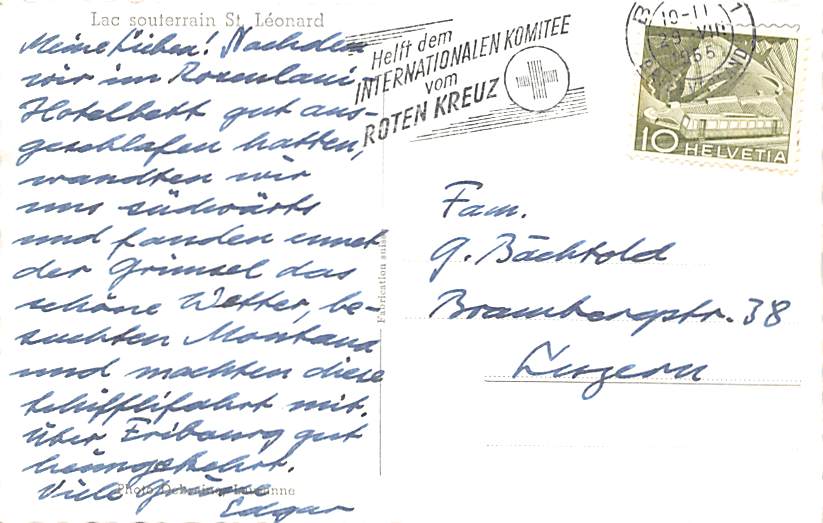 Lac souterrain St. Léonard
Meine Lieben! Nachdem
wir im Rosenlaui-
Hotelbett gut aus-
geschlafen hatten,
wandten wir
uns südwärts
und fanden ennet
der Grimsel das
schöne Wetter, be-
suchten Montana
und machten diese
Schifflifahrt mit.
Über Fribourg gut
heimgekehrt.
Viele Grüsse
Edgar
Photo Lausanne
Fabrication suisse
Helft dem
INTERNATIONALEN KOMITEE
vom
ROTEN KREUZ
10-11
29.VIII
1955
10 HELVETIA
Fam.
G. Bächtold
Brambergstr. 38
Luzern